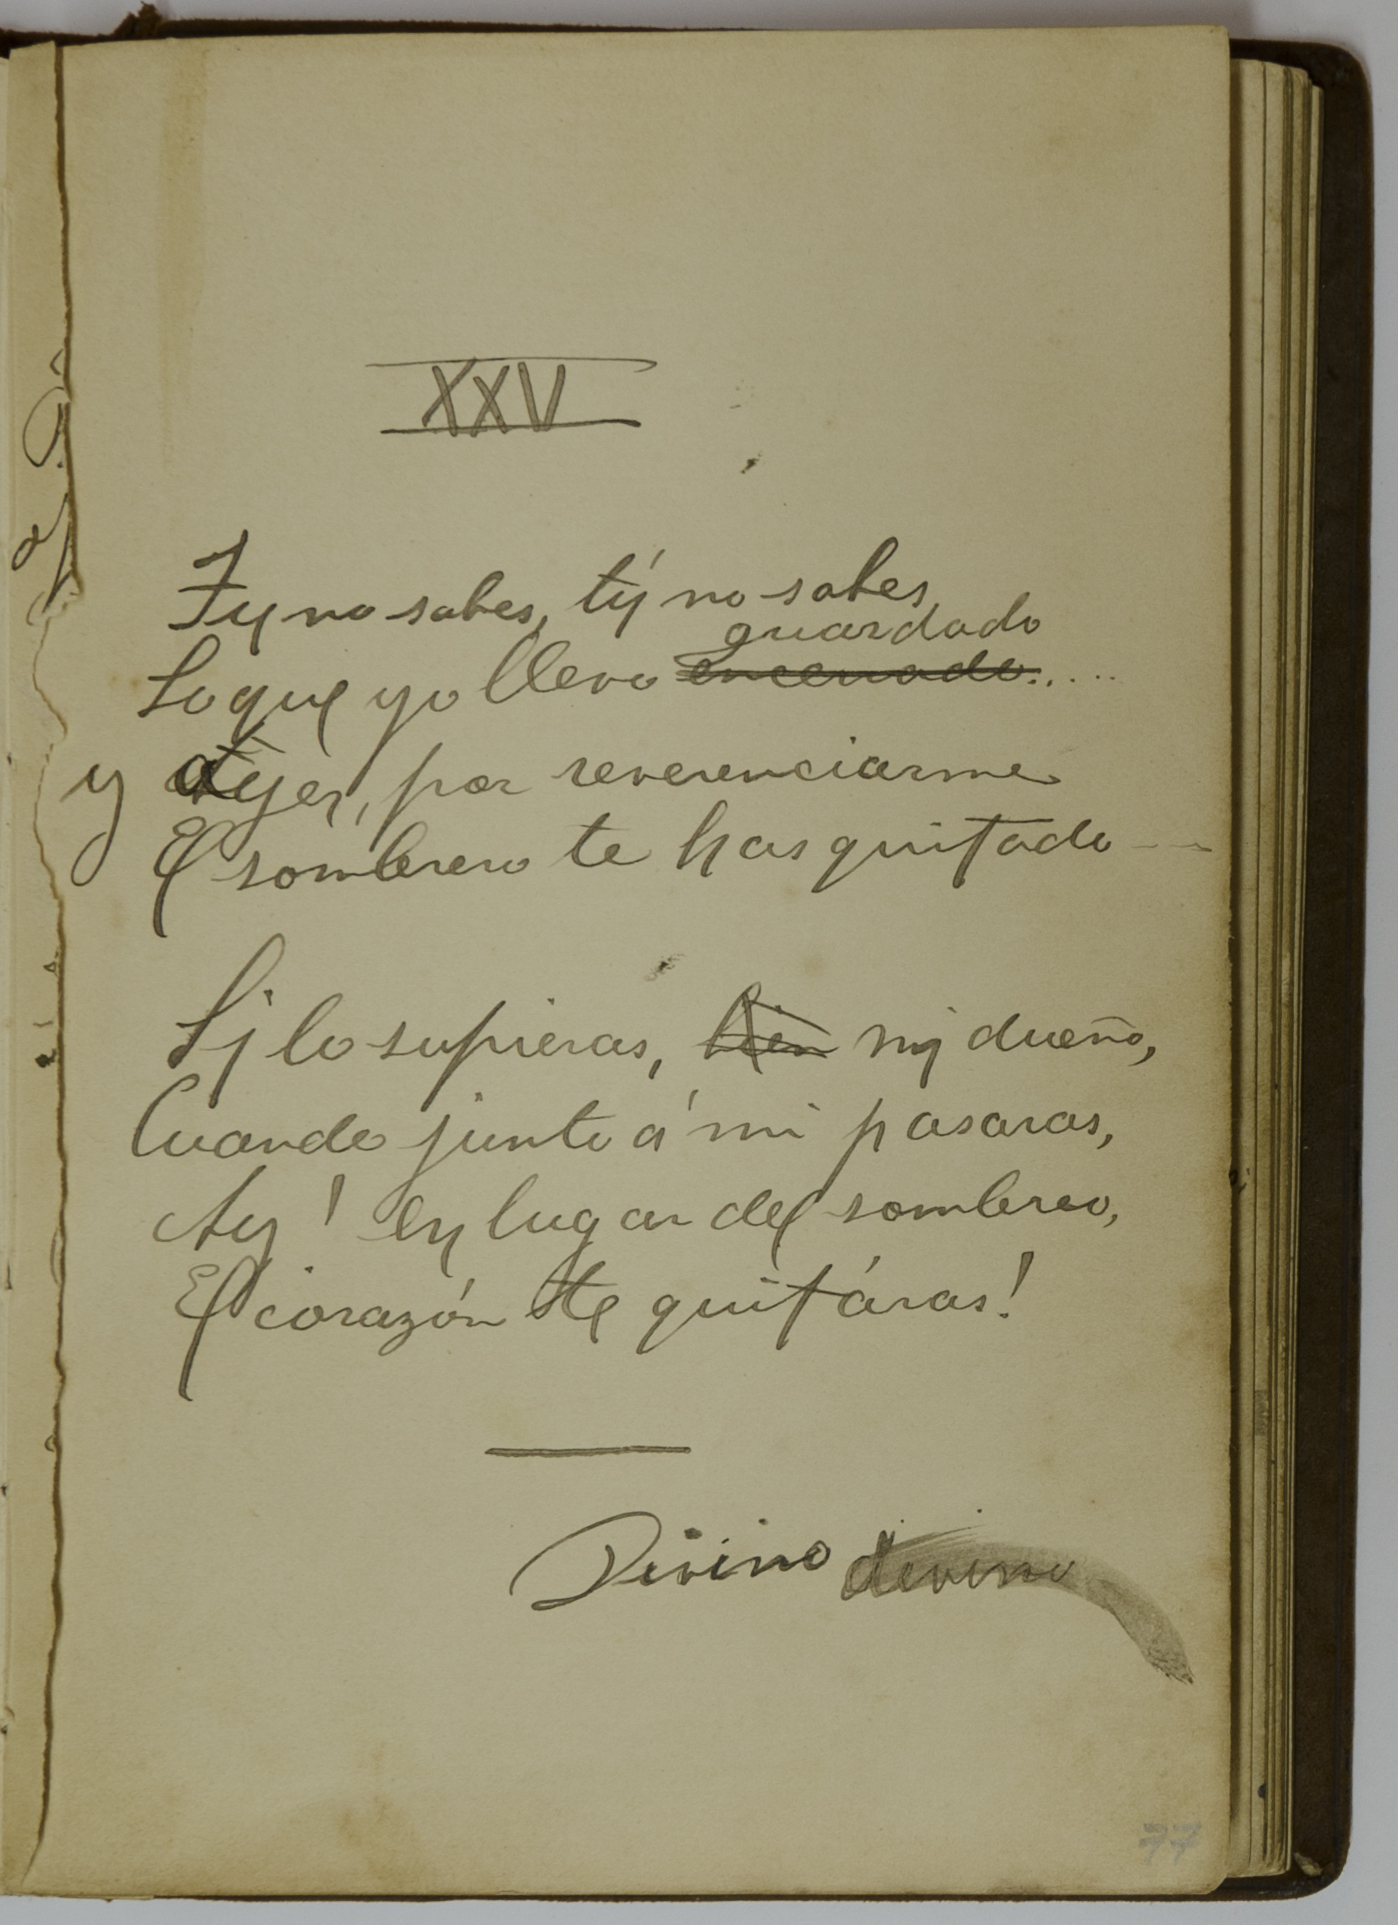 XXV
Tu no sabes, tú no sabes,
guardado
Lo que yo llevo encerrado.....
y ayer, por reverenciarme
El sombrero te has quitado ---
Si lo supieras, bien mi dueño,
Cuando junto á mi pasaras,
Ay! en lugar del sombrero,
El corazón te quitáras!
Divino divino
77